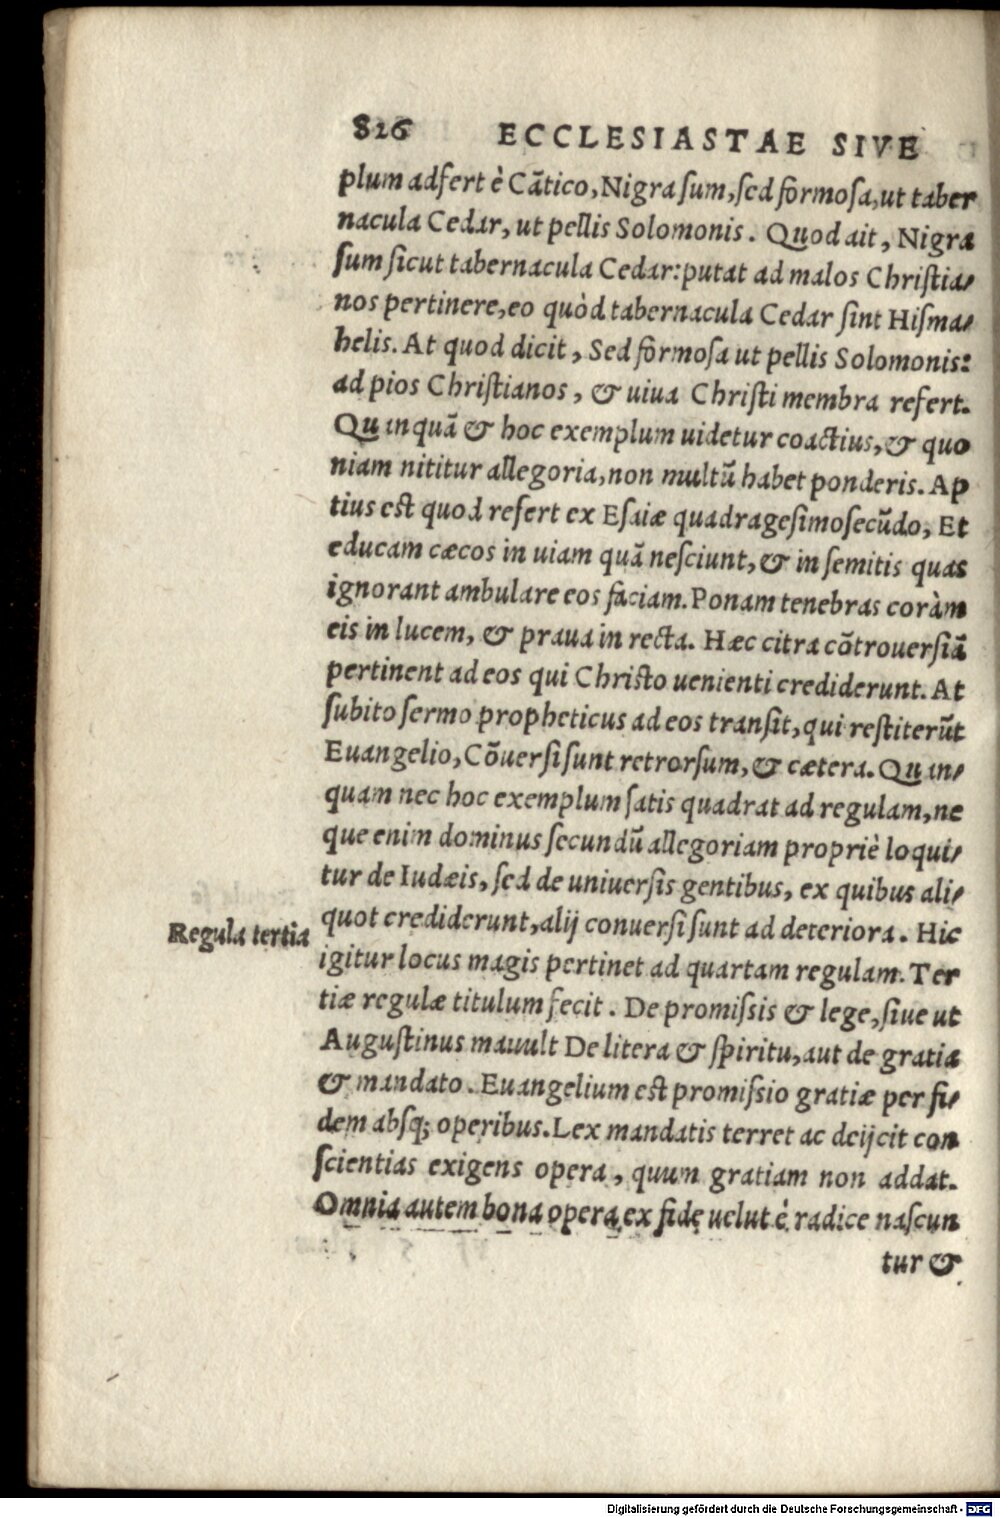 826 ECCLESIASTAE SIVE
plum adfert è Cãtico, Nigra ſum, ſed formoſa, ut taber
nacula Cedar, ut pellis Solomonis. Quod ait, Nigra
ſum ſicut tabernacula Cedar: putat ad malos Chriſtia-
nos pertinere, eo quòd tabernacula Cedar ſint Hiſma-
helis. At quod dicit, Sed formoſa ut pellis Solomonis:
ad pios Chriſtianos, & uiua Chriſti membra refert.
Quanquã & hoc exemplum uidetur coactius, & quo
niam nititur allegoria, non multũ habet ponderis. Ap
tius eſt quod refert ex Eſaiæ quadrageſimoſecũdo, Et
educam cæcos in uiam quã neſciunt, & in ſemitis quas
ignorant ambulare eos faciam. Ponam tenebras coràm
eis in lucem, & praua in recta. Hæc citra cõtrouerſiã
pertinent ad eos qui Chriſto uenienti crediderunt. At
ſubito ſermo propheticus ad eos tranſit, qui reſtiterũt
Euangelio, Cõuerſi ſunt retrorſum, & cætera. Quan-
quam nec hoc exemplum ſatis quadrat ad regulam, ne
que enim dominus ſecundũ allegoriam propriè loqui-
tur de Iudæis, ſed de uniuerſis gentibus, ex quibus ali-
quot crediderunt, alij conuerſi ſunt ad deteriora. Hic
Regula tertia
igitur locus magis pertinet ad quartam regulam. Ter
tiæ regulæ titulum fecit. De promiſsis & lege, ſiue ut
Auguſtinus mauult De litera & ſpiritu, aut de gratia
& mandato. Euangelium eſt promiſsio gratiæ per fi-
dem abſq; operibus. Lex mandatis terret ac deijcit con
ſcientias exigens opera, quum gratiam non addat.
Omnia autem bona opera ex fide uelut è radice naſcun
tur &
Digitalisierung gefördert durch die Deutsche Forschungsgemeinschaft - DFG